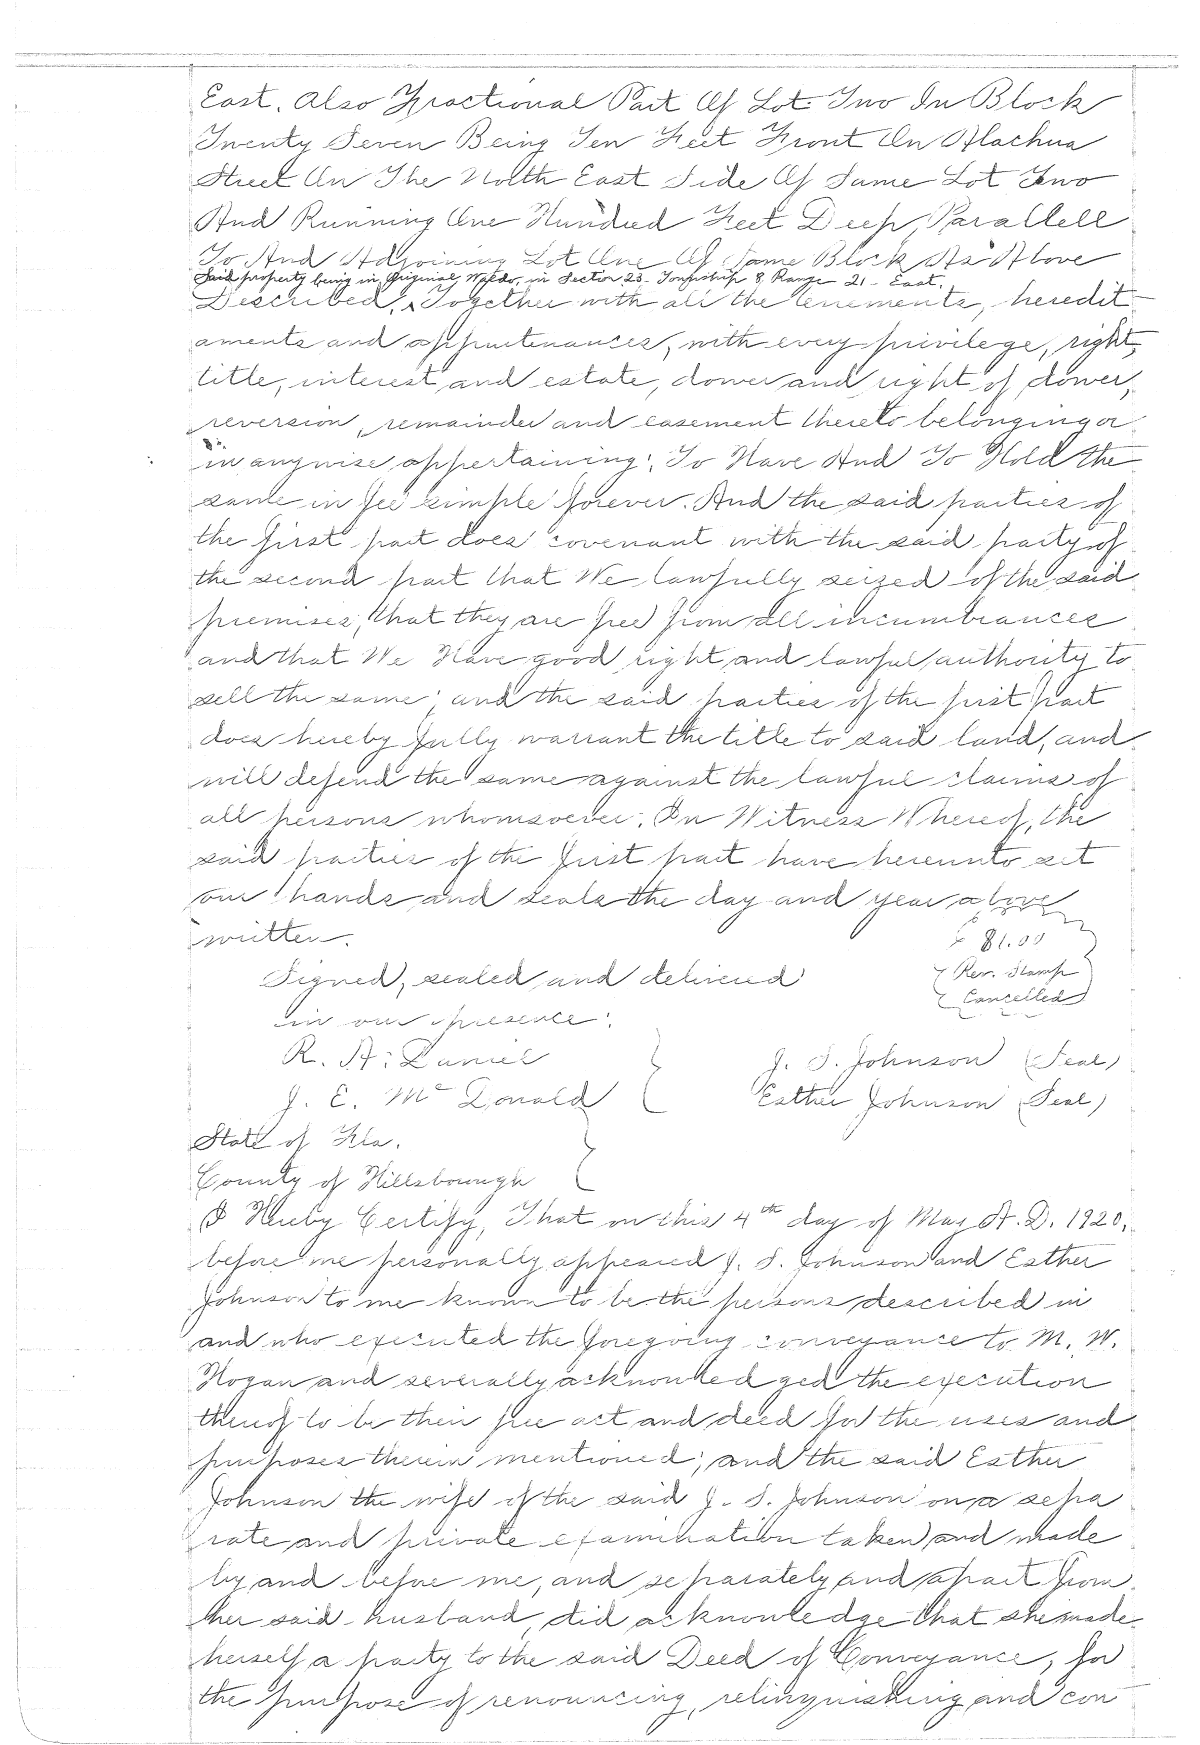 East. Also Fractional Part Of Lot Two In Block
Twenty Seven Being Ten Feet Front On Alachua
Street On The North East Side Of Same Lot Two
And Running One Hundred Feet Deep, Parallell
To And Adjoining Lot One Of Same Block As Above
Said property being in Original Waldo, in Section 23 Township 8, Range 21 East.
Described, ^ Together with all the tenements, heredit-
aments and appurtenances, with every privilege, right,
title, interest, and estate, dower and right of dower,
reversion, remainder and easement thereto belonging or
in anywise appertaining: To Have And To Hold the
same in fee simple forever. And the said parties of
the first part does covenant with the said party of
the second part that We lawfully seized of the said
premises, that they are free from all incumbrances
and that We Have good right and lawful authority to
sell the same; and the said parties of the first part
does hereby fully warrant the title to said land, and
will defend the same against the lawful claims of
all persons whomsoever. In Witness Whereof, the
said parties of the first part have hereunto set
our hands and seals the day and year above
written.
$1.00
Rev. Stamp
Cancelled
Signed, sealed and delivered
in our presence:
R. A. Daniel
J. E. Mc Donald
J. S. Johnson (Seal)
Esther Johnson (Seal)
State of Fla.
County of Hillsborough
I Hereby Certify, That on this 4th day of May A. D. 1920,
before me personally appeared J. S. Johnson and Esther
Johnson to me known to be the persons described in
and who executed the foregoing conveyance to M. W.
Hogan and severally acknowledged the execution
thereof to be their free act and deed for the uses and
purposes therein mentioned; and the said Esther
Johnson the wife of the said J. S. Johnson on a sepa
rate and private examination taken and made
by and before me, and separately and apart from
her said husband, did acknowledge that she made
herself a party to the said Deed of Conveyance, for
the purpose of renouncing, relinquishing and con-